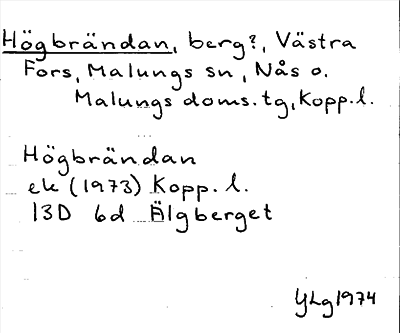 Högbrändan, berg?, Västra
Fors, Malungs sn, Nås o.
Malungs doms.tg, Kopp.l.
Högbrändan
ek (1973) Kopp. l.
13D 6d Älgberget
YLg 1974